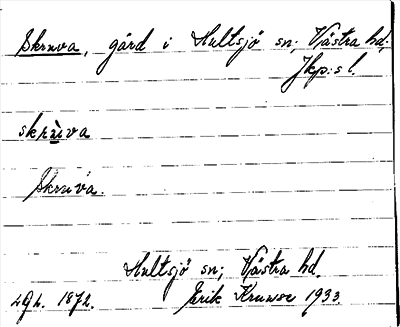 Skruva, gård i Hultsjö sn; Västra hd,
Jkp:s l.
skrùva
Skruva.
Hultsjö sn; Västra hd.
Erik Kruuse 1933.
1872.